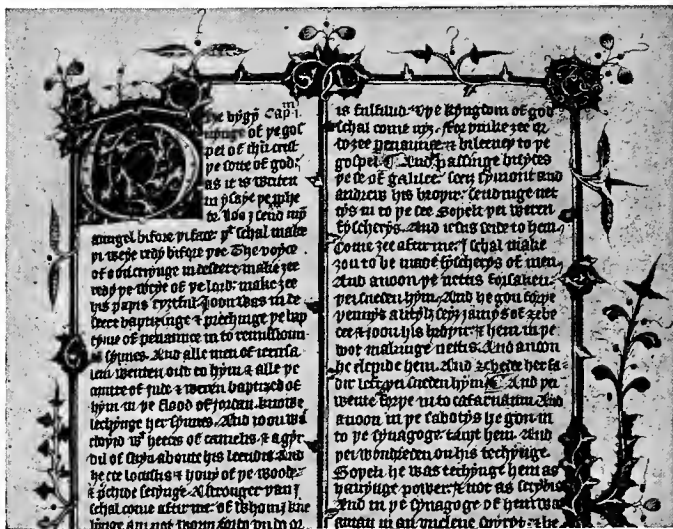 þe bygyn Capm. i.
nynge of þe gos
pel of ihu crist
þe sone of god:
as it is writen
in ysaye þe prophe
te. loo I send myn
aungel bifore þi face: þt schal make
þi weye redy bifore þee. The voyce
of oon cryinge in deseert: make ȝee
redy þe weye of þe lord: make ȝee
his paþis ryȝtful. Joon was in de
seert baptizinge & prechinge þe bap
tym of penaunce in to remissioun
of synnes. And alle men of ierusa
lem wenten out to hym & alle þe
cuntre of jude & weren baptized of
hym in þe flood of jordan. knowe
lechynge her synnes. And ioon was
cloþid wt heeris of camelis & a gyr
dil of skyn aboute his leendis And
he ete locustis & hony of þe wode
& prechide seiynge. A stronger þan I
schal come aftir me. of whom I kne
lynge am not worþi forto vndo or
is fulfillid & þe kyngdom of god
schal come nyȝ. forþinke ȝee or
do ȝee penaunce & bileeue ȝe to þe
gospel. And passinge bisydes
þe se of galilee seeȝ symont and
andrew his broþir sendinge net
tys in to þe see Soþeli þei weren
fyscherys. And iesus seide to hem
Come ȝee aftir me. I schal make
ȝou to be maad fyscherys of men.
And anoon þe nettis forsaken
þei sueden hym. And he gon forþe
þennys a lityl seeȝ jamys of zebe
dee & joon his broþir & hem in þe
boot makinge nettis. And anoon
he clepide hem. And ȝebedee her fa
dir left þei sueden hym And þei
wente forþe in to cafarnaum. And
anoon in þe sabotys he gon in
to þe synagoge tauȝt hem. And
þei wondreden on his techynge.
Soþeli he was techynge hem as
hauynge power: & not as scrybis
And in þe synagoge of hem was
a man in an vnclene spyryt: & he